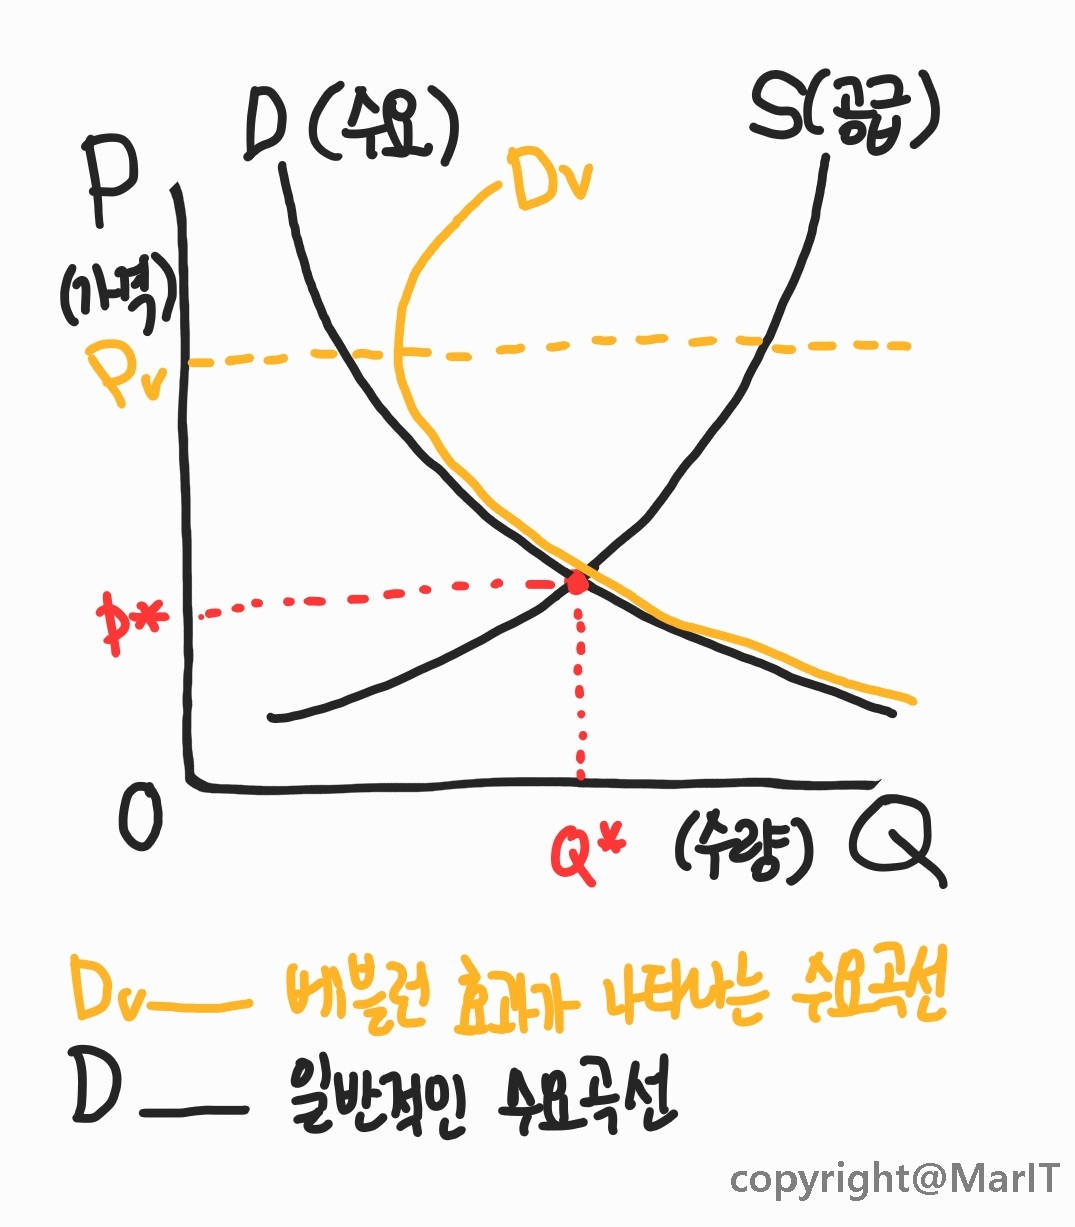 D (수요)
S(공급)
Dv
P
(가격)
Pv
P*
O
Q*
(수량)
Q
Dv 베블런 효과가 나타나는 수요곡선
D 일반적인 수요곡선
copyright@MarIT